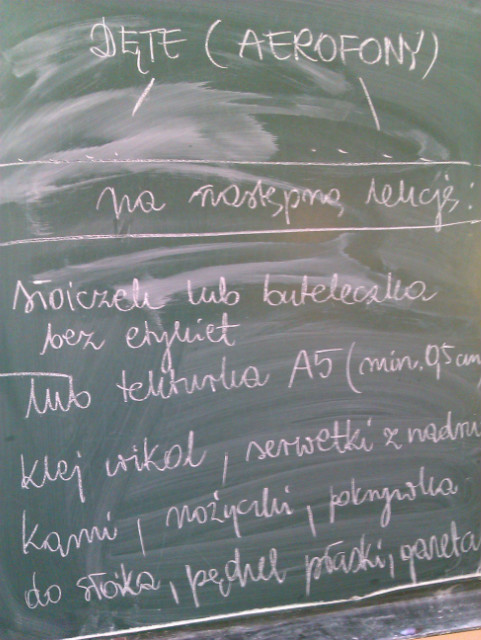 DĘTE (AEROFONY)
na następną lekcję:
słoiczek lub buteleczka
bez etykiet
lub tekturka A5 (min. 0,5 cm
klej wikol, serwetki z nadru
kami, nożyczki, pokrywka
do słoika, pędzel płaski, gazeta